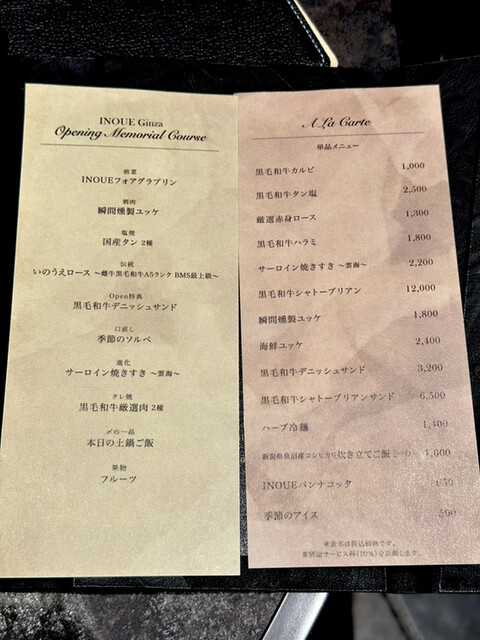 INOUE Ginza
Opening Memorial Course
前菜
INOUEフォアグラプリン
刺肉
瞬間燻製ユッケ
塩焼
国産タン 2種
伝統
いのうえロース ～雌牛黒毛和牛A5ランク BMS最上級～
Open特典
黒毛和牛デニッシュサンド
口直し
季節のソルベ
進化
サーロイン焼きすき ～雲海～
タレ焼
黒毛和牛厳選肉 2種
〆の一品
本日の土鍋ご飯
果物
フルーツ
A La Carte
単品メニュー
黒毛和牛カルビ 1,000
黒毛和牛タン塩 2,500
厳選赤身ロース 1,300
黒毛和牛ハラミ 1,800
サーロイン焼きすき ～雲海～ 2,200
黒毛和牛シャトーブリアン 12,000
瞬間燻製ユッケ 1,800
海鮮ユッケ 2,400
黒毛和牛デニッシュサンド 3,200
黒毛和牛シャトーブリアンサンド 6,500
ハーブ冷麺 1,400
新潟県魚沼産コシヒカリ炊き立てご飯 1,000
INOUEパンナコッタ
季節のアイス 500
※表示は税込価格です。
※別途サービス料(10%)を頂戴します。